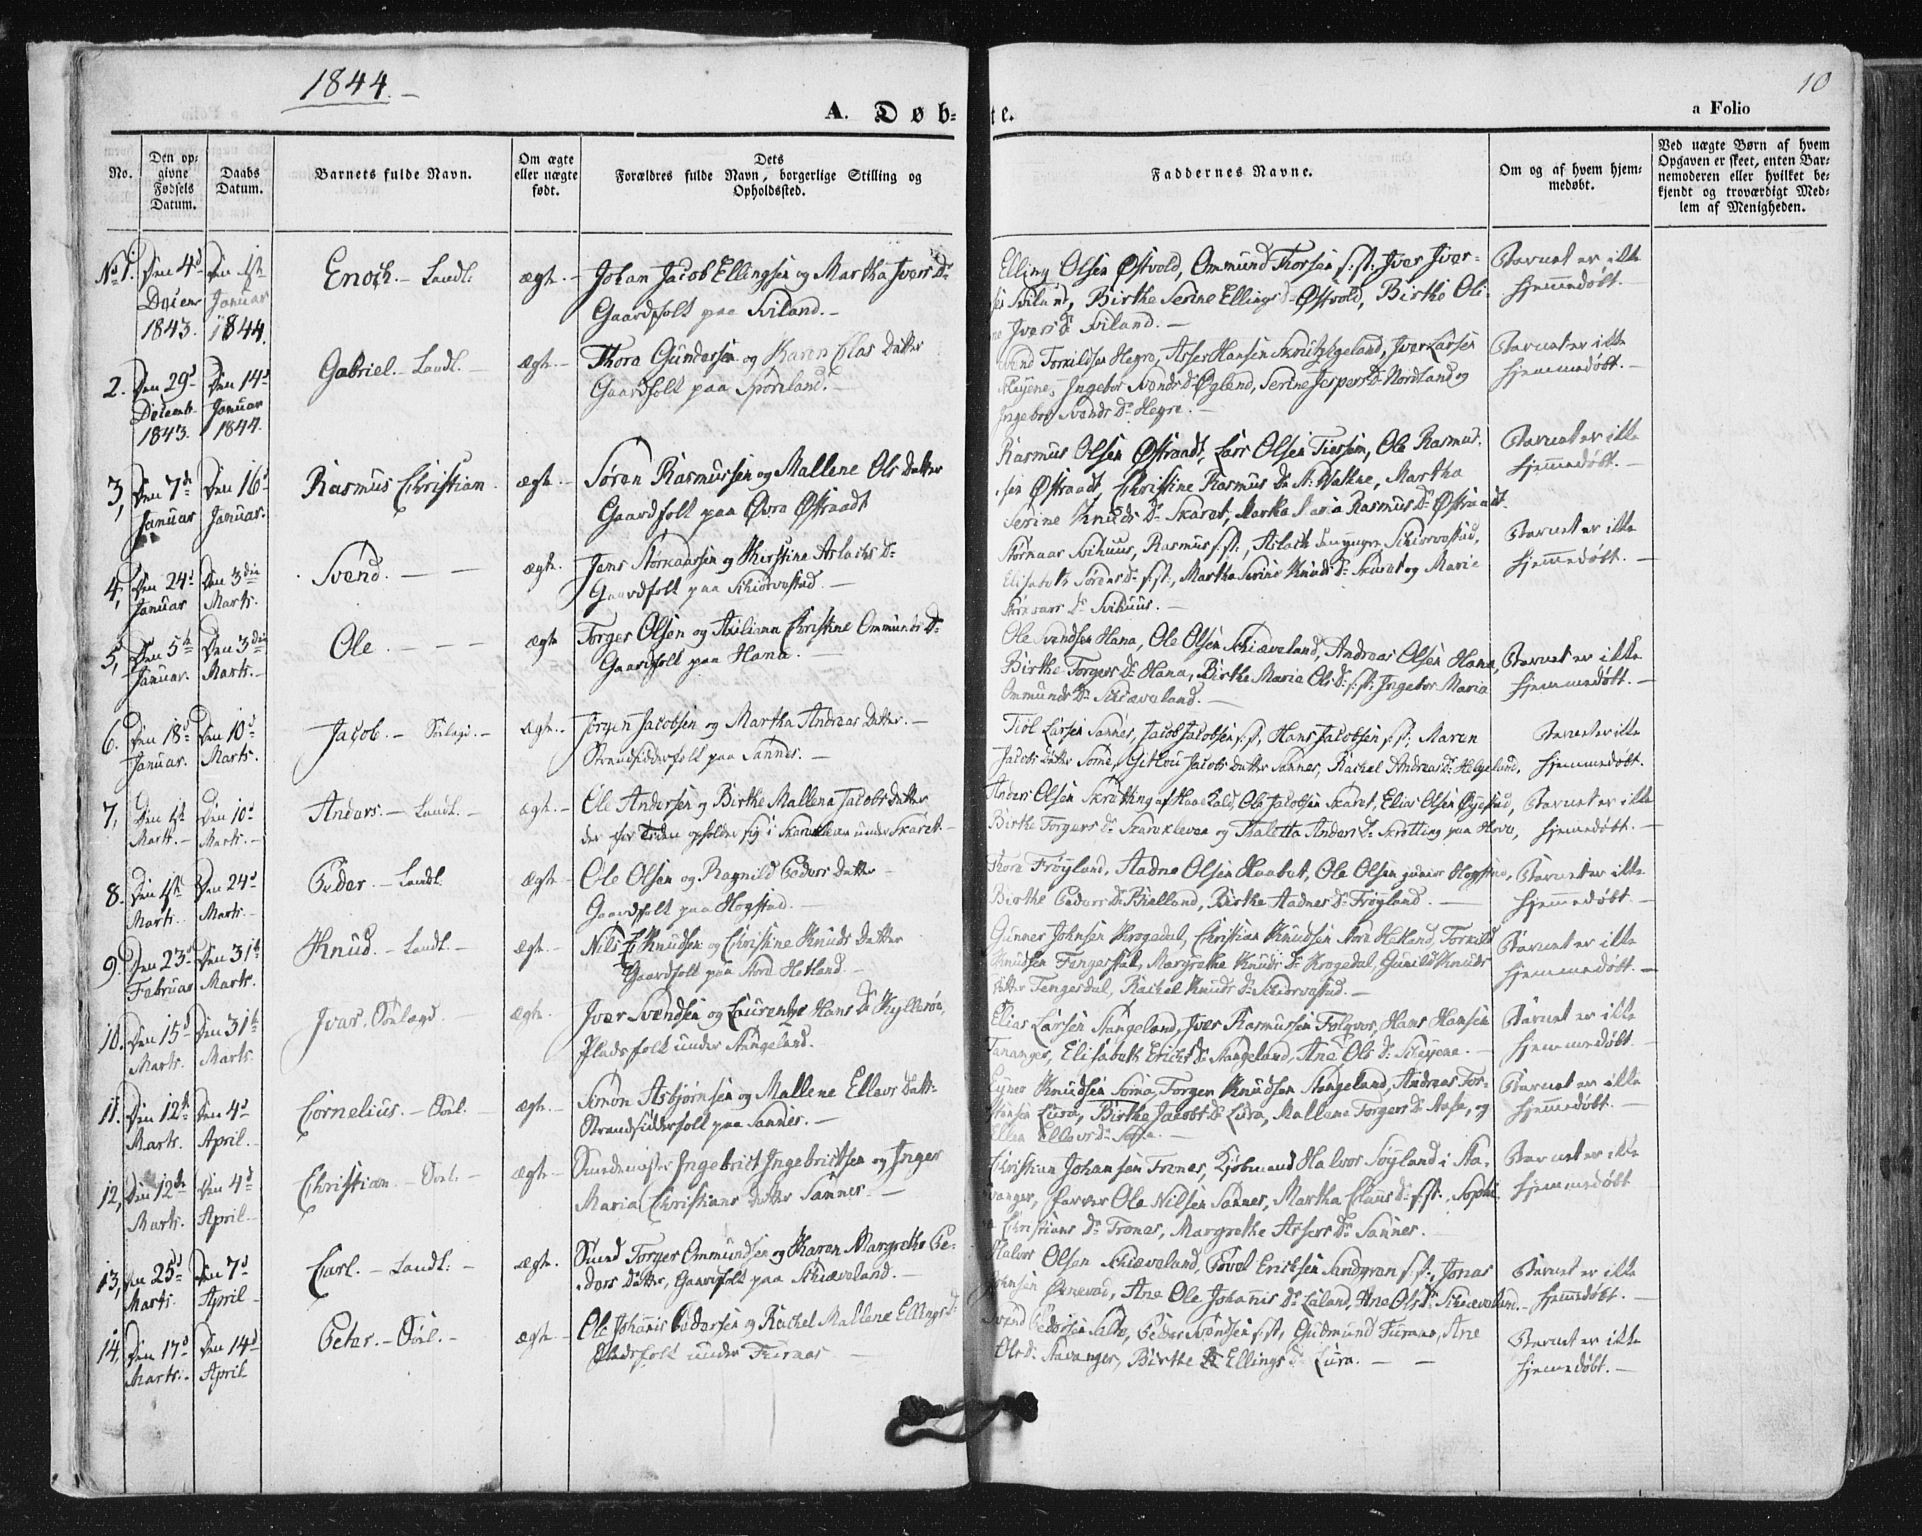 1844.
A. Døb-
te.
a Folio
10
No.
Den op-
givne
Fødsels
Datum.
Daabs
Datum.
Barnets fulde Navn.
Om ægte
eller uægte
født.
Dets
Forældres fulde Navn, borgerlige Stilling og
Opholdssted.
Faddernes Navne.
Om og af hvem hjem-
medøbt.
Ved uægte Børn af hvem
Opgaven er skeet, enten Bar-
nemoderen eller hvilket be-
kjendt og troværdigt Med-
lem af Menigheden.
No 1. Den 4d
1843.
Den 1ste
Januar
1844.
Enoch. - Landl.
ægte. -
Johan Jacob Ellingsen og Martha Ivers Dr
Gaardfolk paa Sviland. -
Elling Olsen Østvold, Ommund Thorsen s. st. Iver Iver-
sen Sviland, Birthe Serine Ellings Dr Østvold, Birthe Oli-
ne Ivers Dr Sviland. -
Barnet er ikke
hjemmedøbt. -
2. Den 29d
Decemb.
1843.
Den 14d
Januar
1844.
Gabriel. - Landl. -
ægte. -
Thore Gundersen og Karen Elas Datter
Gaardfolk paa Spøreland. -
Svend Torkildsen Hegre, Asser Hansen, Iver Larsen
Skeyene, Ingebor Svends Dr Øglend, Serine Jespers Dr Nordland og
Ingebor Svends Dr Hegre. -
Barnet er ikke
hjemmedøbt. -
3, Den 7de
Januar
Den 16d
Januar.
Rasmus Christian.
ægte. -
Søren Rasmussen og Mallene Ols Datter
Gaardfolk paa Øvre Østraadt
Rasmus Olsen Østraadt, Lars Olsen Tiessem, Ole Rasmus-
sen Østraadt, Christine Rasmus Dr St. Vatne, Martha
Serine Knuds Dr Skaret, Martha Maria Rasmus Dr Østraadt.
Barnet er ikke
hjemmedøbt. -
4, Den 24d
Januar
Den 3die
Marts.
Svend. - -
ægte.
Jens Størkaarsen og Kerstine Aslachs Dr
Gaardfolk paa Schiørvestad. -
Størkaar Svihuus, Rasmus s. st., Aslach den yngre Schiørvestad,
Elisabeth Sørens Dr s. st., Martha Serine Knuds Dr Skaret og Marie
Størkaars Dr Svihuus. -
Barnet er ikke
hjemmedøbt. -
5, Den 5te
Januar.
Den 3die
Marts. -
Ole. - - -
ægte
Torger Olsen og Christine Ommunds Dr
Gaardfolk paa Hana. -
Ole Svendsen Hana, Ole Olsen Schiæveland, Andreas Olsen Hana,
Birthe Torgers Dr Hana, Birthe Marie Ols Dr s. st. Ingebor Maria
Ommunds Dr Schiæveland. -
Barnet er ikke
hjemmedøbt. -
6. Den 18d
Januar.
Den 10d
Marts.
Jacob. - Sølagd. -
ægte. -
Jørgen Jacobsen og Martha Andreas Datter. -
Strandsidderfolk paa Sannes. -
Tiøl Larsen Sannes, Jacob Jacobsen s. st., Hans Jacobsen s. st., Maren
Jacobs Datter Somme, Jacobs Datter Sannes, Rachel Andreas Dr Helgeland.
Barnet er ikke
hjemmedøbt.
7, Den 1ste
Marts. -
Den 10d
Marts. -
Anders. - Landl. -
ægte. -
Ole Andersen og Birthe Mallene Jacobs Datter
der for Tiden opholder sig i Skarekleven under Skaret. -
Anders Olsen Skrøtting af Haaeland, Ole Jacobsen Skaret, Elias Olsen Øyestad,
Birthe Torgers Dr Skarekleven og Thaletta Anders Dr Skrøtting paa Hove,
Barnet er ikke
hjemmedøbt. -
8. Den 1ste
Marts.
Den 24d
Marts. -
Peder. - Landl.
ægte -
Ole Olsen og Ragnild Peders Datter -
Gaardfolk paa Hogstad. -
Thore Frøyland, Aadne Olsen Kaabet, Ole Olsen junior Hogstad,
Birthe Peders Dr Bielland, Birthe Aadnes Dr Frøyland. -
Barnet er ikke
hjemmedøbt. -
9. Den 23d
Februar
Den 31te
Marts.
Knud. - Landl. -
ægte -
Nils Knudsen og Christine Knuds Datter
Gaardfolk paa Nord Hetland. -
Gunner Johnsen Krogedal, Christian Knudsen Nord Hetland, Torkild
Knudsen Tengesdal, Margrethe Knuds Dr Krogedal, Gunild Knuds
Datter Tengesdal, Rachel Knuds Dr Schiørvestad. -
Barnet er ikke
hjemmedøbt. -
10. Den 15d
Marts.
Den 31te
Marts.
Ivar. Sølagd -
ægte.
Iver Svendsen og Laurentze Hans Dr Kyllesøe,
Pladsfolk under Stangeland.
Elias Larsen Stangeland, Iver Rasmussen Folqver, Hans Hansen
Tananger, Elisabeth Erichs Dr Stangeland, Ane Ols Dr Scheyene. -
Barnet er ikke
hjemmedøbt. -
11. Den 12te
Marts.
Den 4d
April. -
Cornelius. - Søl. -
ægte. -
Simon Asbjørnsen og Mallene Ellevs Datt-
Strandsidderfolk paa Sannes. -
Knudsen Somme, Torger Knudsen Stangeland, Andreas Tor-
stensen Lura, Birthe Jacobs Dr Lura, Mallene Torgers Dr Aase, og
Ellen Ellevs Dr
Barnet er ikke
hjemmedøbt. -
12, Den 12te
Marts.
Den 4d
April. -
Christian. - Søl. -
ægte -
Smedemester Ingebrict Ingebrictsen og Inger
Maria Christians Datter Sannes. -
Christian Johansen Trones, Kjøbmand Halvor Søyland i Sta-
vanger, Farver Ole Nilsen Sannes, Martha Claus Dr s. st., Sophi-
e Christians Dr Trones, Margrethe Assers Dr Sannes. -
Barnet er ikke
hjemmedøbt
13, Den 25d
Marts.
Den 7d
April -
Carl. - Landl. -
ægte. -
Smed Torger Ommundsen og Karen Margrethe Pe-
ders Datter, Gaardfolk paa Schiæveland. -
Halvor Olsen Schiæveland, Povel Ericksen Sandgren s. st., Jonas
Johnsen Ørnevad, Ane Ole Johannis Dr Læland, Ane Ols Dr Schiæveland. -
Barnet er ikke
hjemmedøbt. -
14, Den 17d
Marts. -
Den 14d
April
Peter. - Søl. -
ægte -
Ole Johannis Pedersen og Rachel Mallene Ellings Dr
Pladsfolk under Furnes -
Svend Pedersen Salte, Peder Svendsen s. st., Gudmund Furnes, Ane
Ols Dr Stavanger, Birthe Ellings Dr Lura. - -
Barnet er ikke
hjemmedøbt. -